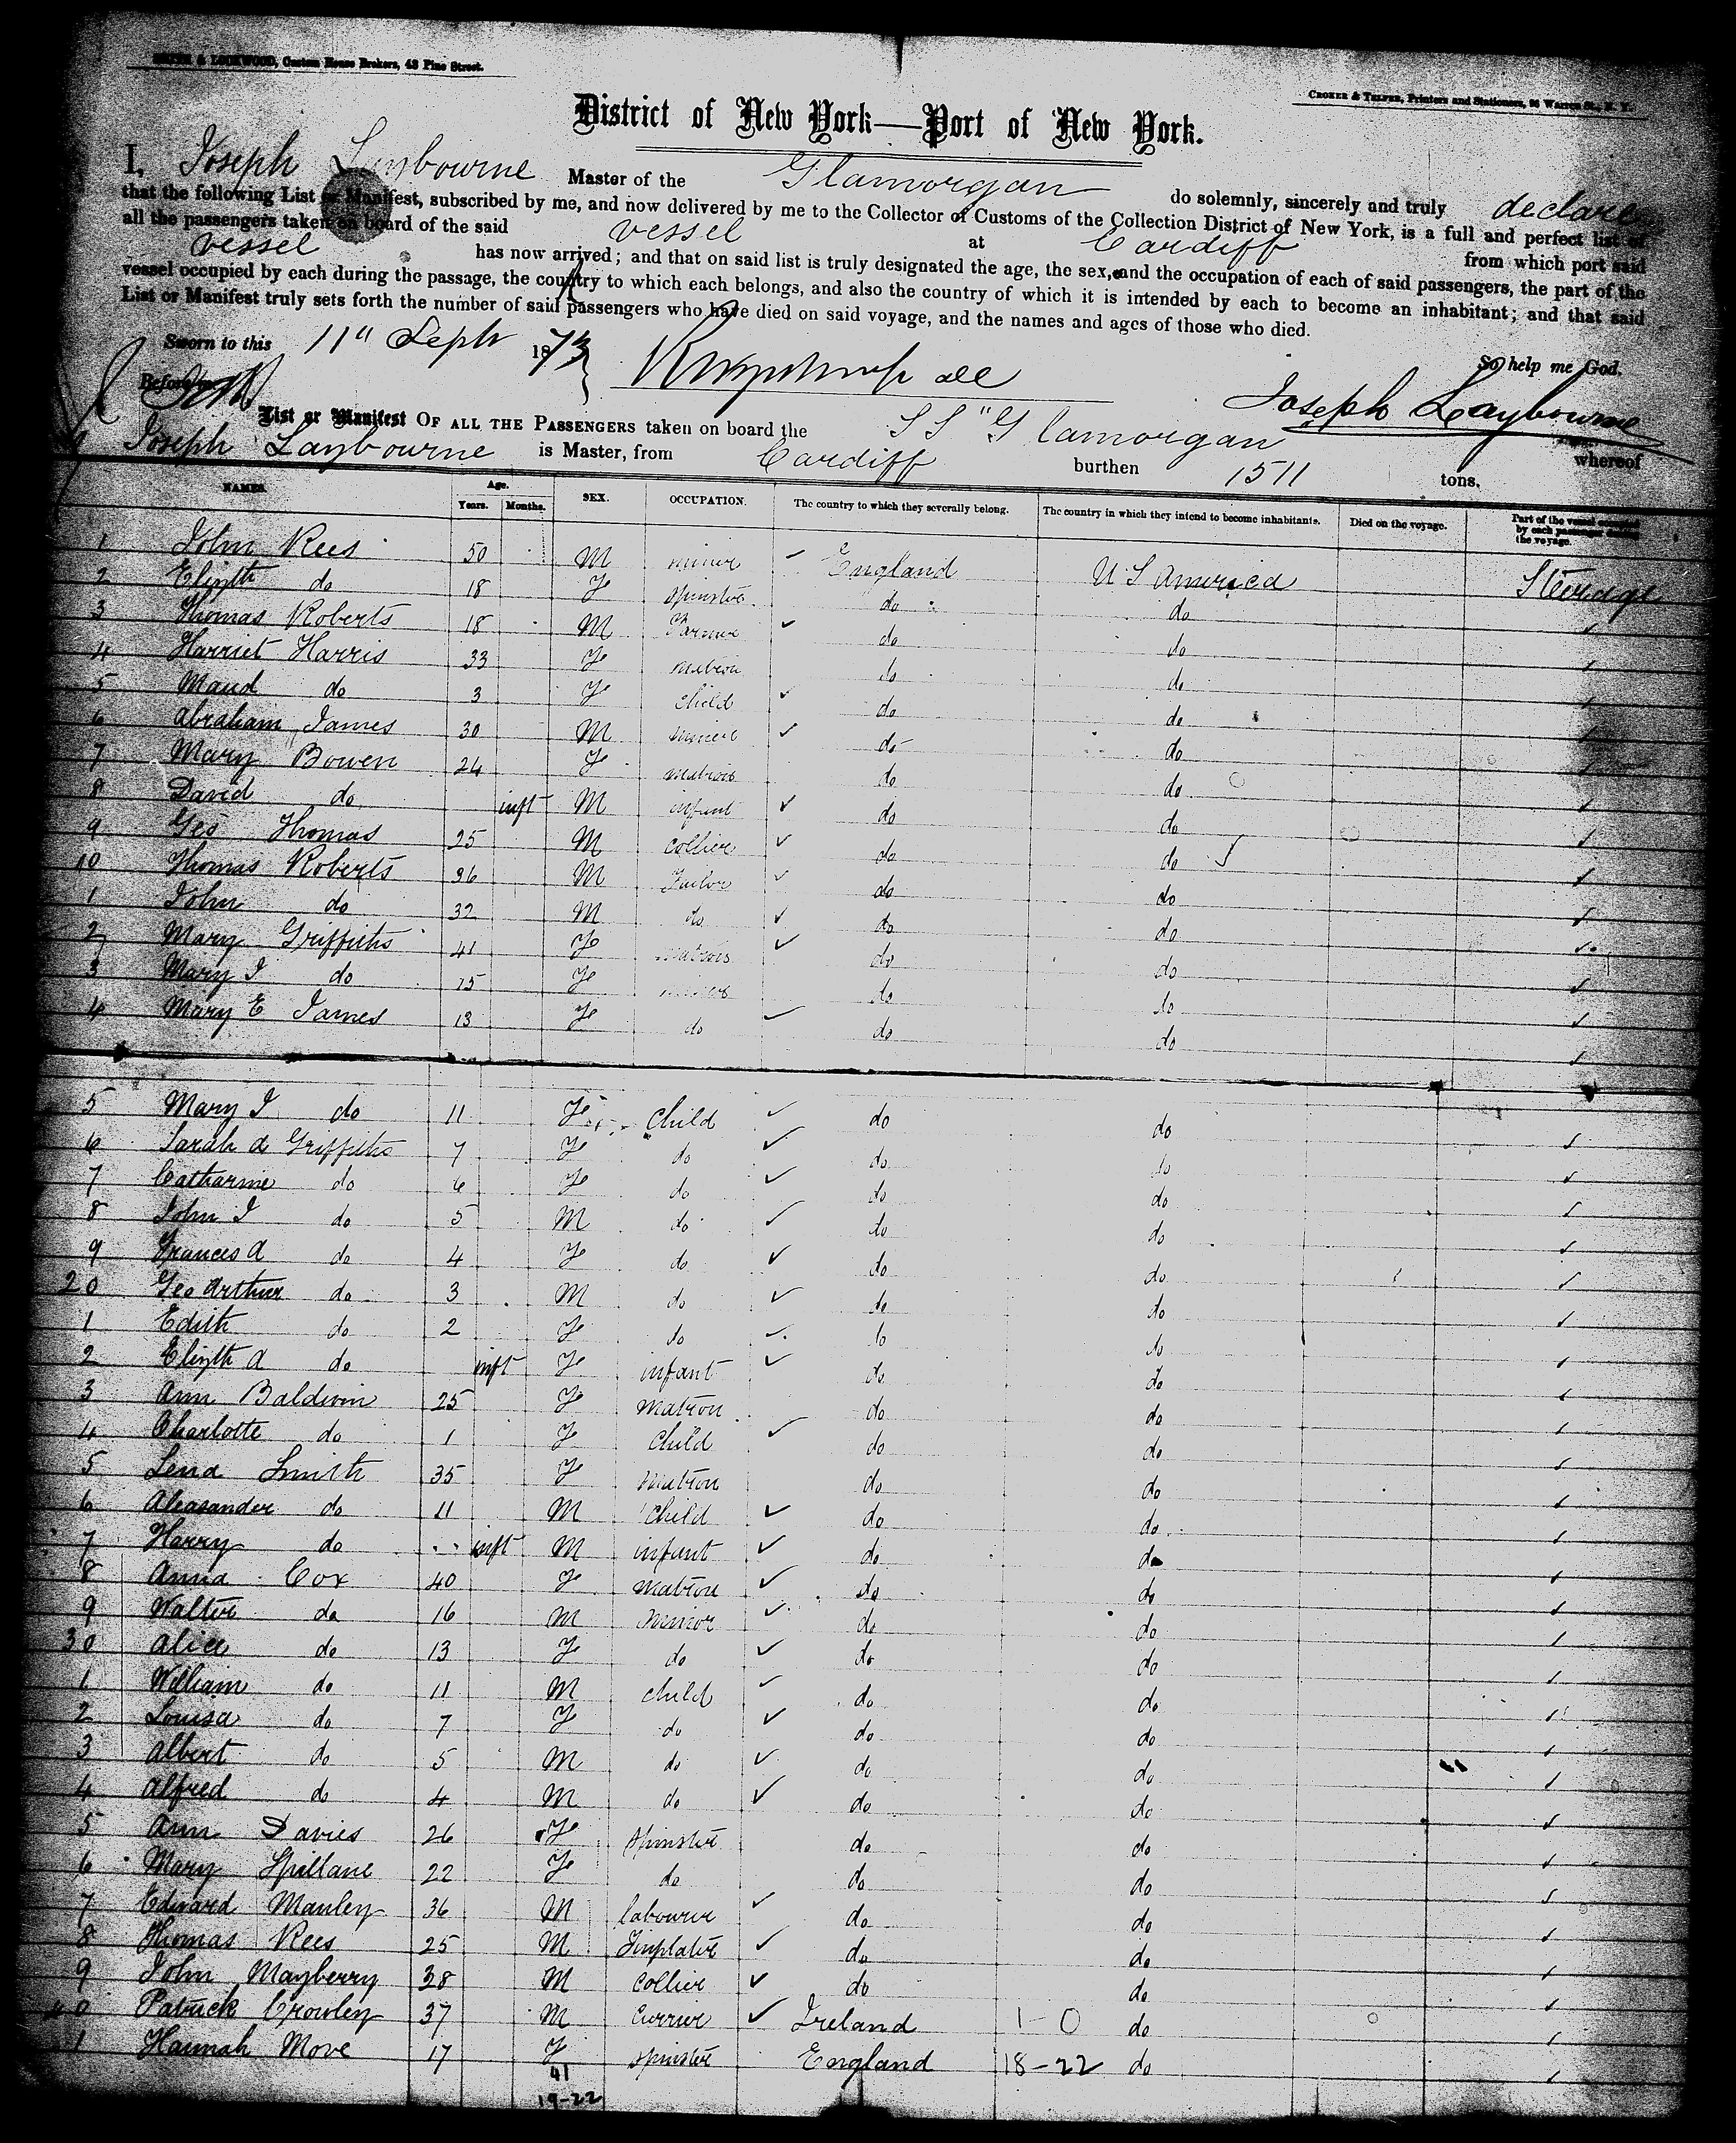 SMITH & LOCKWOOD, Custom House Brokers, 43 Pine Street.
CROKER & TELFER, Printers and Stationers, Warren St., N. Y.
District of New York—Port of New York.
I, Joseph Laybourne Master of the Glamorgan do solemnly, sincerely and truly declare
that the following List or Manifest, subscribed by me, and now delivered by me to the Collector of Customs of the Collection District of New York, is a full and perfect list of
all the passengers taken on board of the said vessel at Cardiff from which port said
vessel has now arrived; and that on said list is truly designated the age, the sex, and the occupation of each of said passengers, the part of the
vessel occupied by each during the passage, the country to which each belongs, and also the country of which it is intended by each to become an inhabitant; and that said
List or Manifest truly sets forth the number of said passengers who have died on said voyage, and the names and ages of those who died.
So help me God.
Sworn to this 11th Sept 1873
Before me
Joseph Laybourne
List or Manifest OF ALL THE PASSENGERS taken on board the SS "Glamorgan whereof
Joseph Laybourne is Master, from Cardiff burthen 1511 tons.
NAMES. Age. Years. Months. SEX. OCCUPATION. The country to which they severally belong. The country in which they intend to become inhabitants. Died on the voyage. Part of the vessel occupied by each passenger during the voyage.
1 John Rees 50 M miner England U S America Steerage
2 Elizth do 18 F Spinster do do
3 Thomas Roberts 18 M Farmer do do
4 Harriet Harris 33 F matron do do
5 Maud do 3 F Child do do
6 Abraham James 30 M do do
7 Mary Bowen 24 F matron do do
8 David do inft M infant do do
9 Geo Thomas 25 M collier do do
10 Thomas Roberts 36 M Tailor do do
1 John do 32 M do do do
2 Mary Griffiths 41 F matron do do
3 Mary J do 15 F do do
4 Mary E James 13 F do do do
5 Mary J do 11 F Child do do
6 Sarah A Griffiths 7 F do do do
7 Catharine do 6 F do do do
8 John J do 5 M do do do
9 Frances A do 4 F do do do
20 Geo Arthur do 3 M do do do
1 Edith do 2 F do do do
2 Elizth A do inft F infant do do
3 Ann Baldwin 25 F Matron do do
4 Charlotte do 1 F Child do do
5 Lena Smith 35 F Matron do do
6 Aleasander do 11 M Child do do
7 Harry do inft M infant do do
8 Anna Cox 40 F Matron do do
9 Walter do 16 M minor do do
30 Alice do 13 F do do do
1 William do 11 M child do do
2 Louisa do 7 F do do do
3 Albert do 5 M do do do
4 Alfred do 4 M do do do
5 Ann Davies 26 F Spinster do do
6 Mary Spillane 22 F do do do
7 Edward Manley 36 M labourer do do
8 Thomas Rees 25 M Tinplater do do
9 John Mayberry 38 M Collier do do
40 Patrick Crowley 37 M Currier Ireland 1-0 do
1 Hannah Move 17 F Spinster England 18-22 do
41
19-22